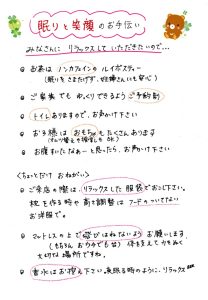 眠りと笑顔のお手伝い
みなさんに リラックスして いただきたいので…
お茶は ノンカフェインの ルイボスティー
(眠りをさまたげず、妊婦さんにも安心)
ご家族でも ゆっくりできるよう ご予約制
トイレありますので、お声かけ下さい
お子様は おもちゃもたくさんあります
お腹すいたなぁーと思ったら、お声かけ下さい
〈ちょっとだけ おねがい〉
ご来店の際は、リラックスした 服装でおこし下さい。
枕を作る時や 高さ調整は フードのついてない
お洋服で。
マットレスの上で 遊びはねないよう お願いします
(もちろん お子様でも) 体を支えて 力をぬく
大切な 場所ですね。
香水はお控え下さい。夜眠る時のように、リラックス